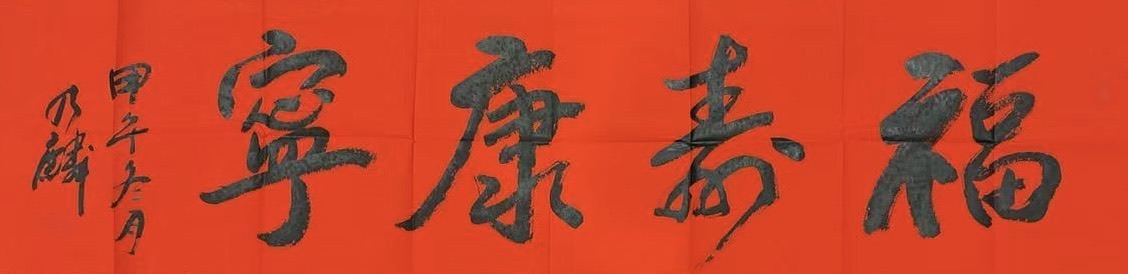 福壽康寧
甲午冬月
乃麟